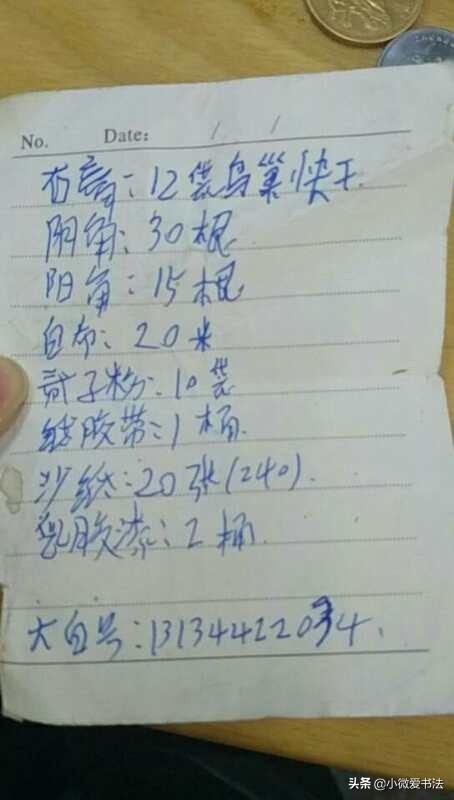 No. Date: / /
石膏:12袋鸟巢快干.
阴角:30根
阳角:15根
白布:20米
腻子粉:10袋
纸胶带:1桶
沙纸:20张(240).
乳胶漆:2桶.
大白号:13134422034.
头条 @小微爱书法